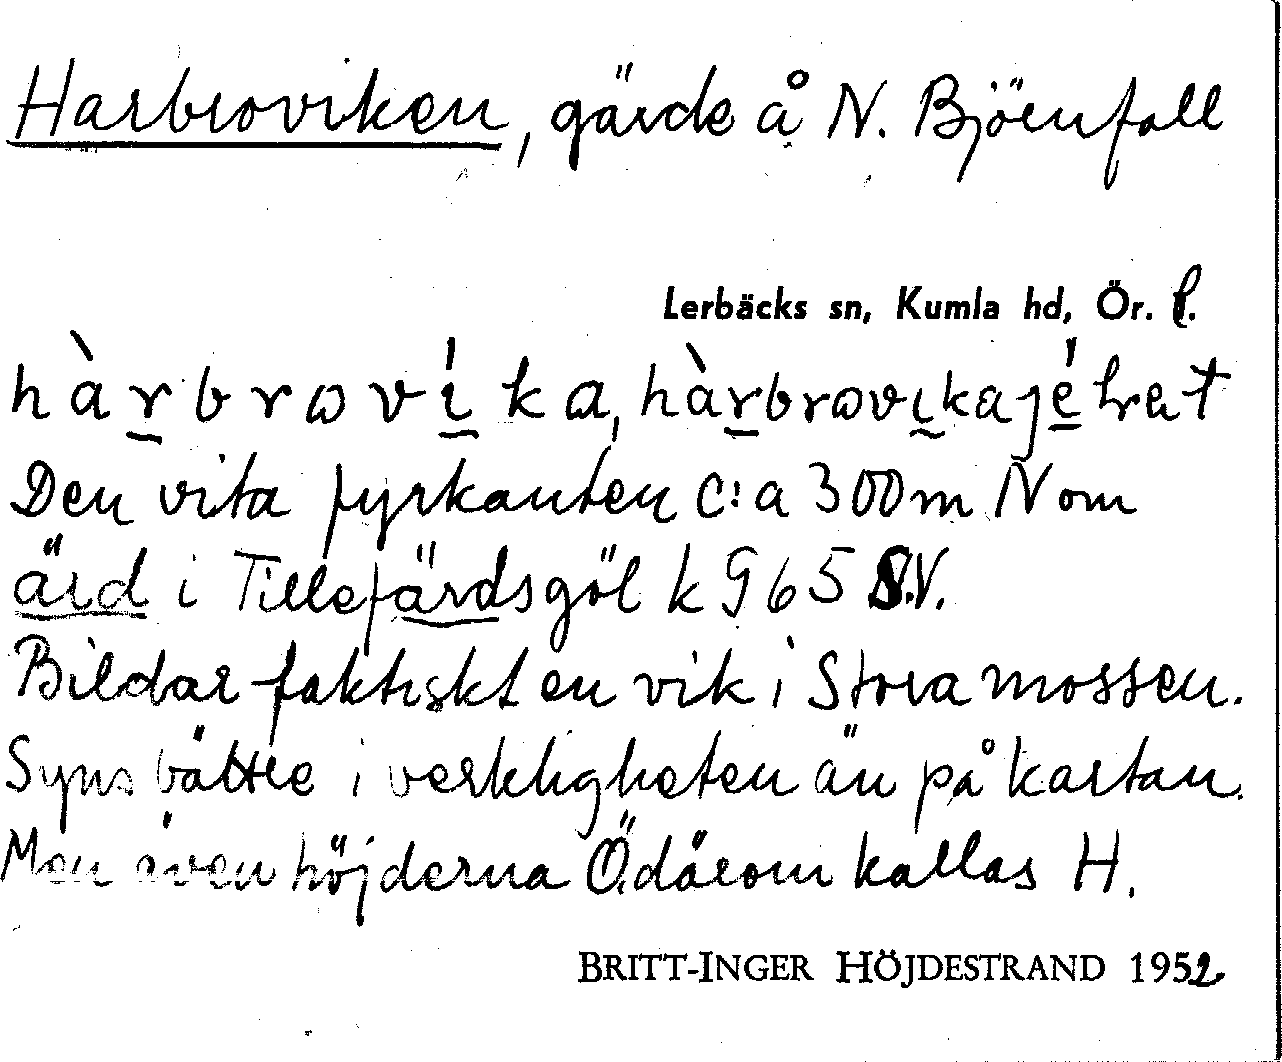 Harbroviken, gärde å N. Björnfall
Lerbäcks sn, Kumla hd, Ör. l.
hàrbrovíka, hàrbrovikajéhrat
Den vita fyrkanten c:a 300 m N om
ärd i Tillefärdsgöl k 965 S.V.
Bildar faktiskt en vik i Stora mossen.
Syns bättre i verkligheten än på kartan.
Men även höjderna Ö. därom kallas H.
BRITT-INGER HÖJDESTRAND 1952